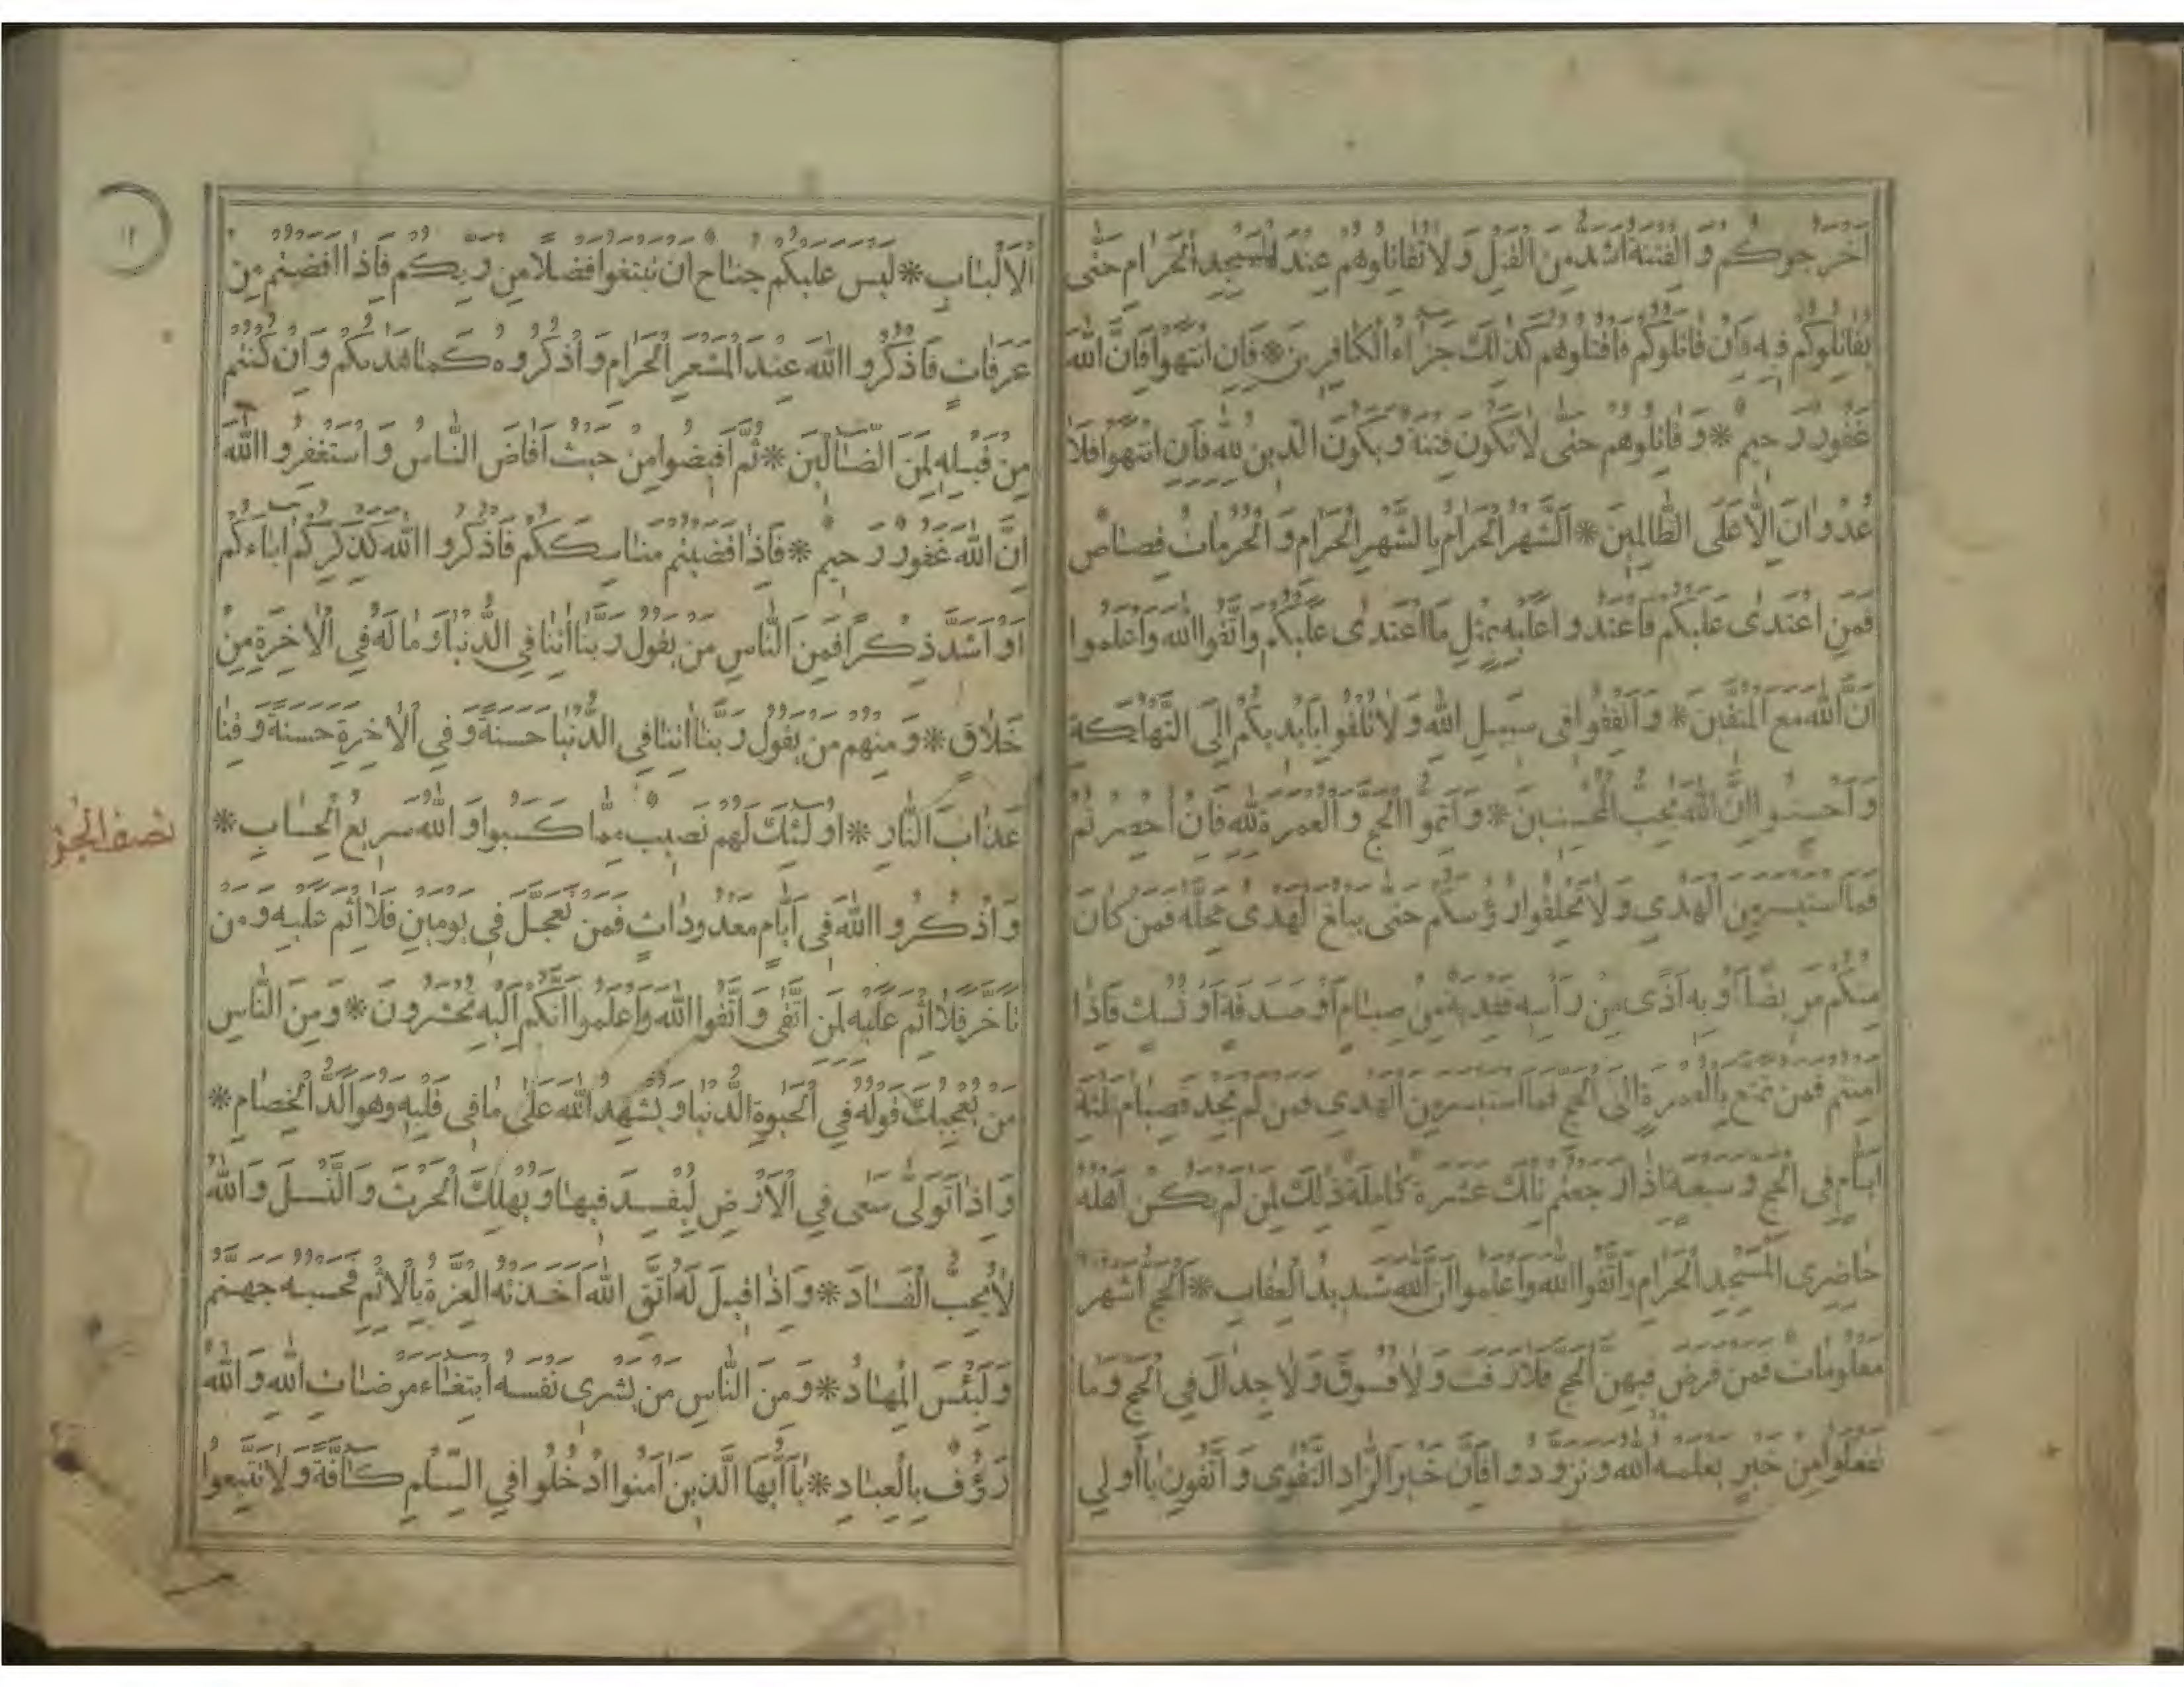 اخرجوكم والفتنة اشد من القتل ولا تقاتلوهم عند المسجد الحرام حتى
يقاتلوكم فيه فان قاتلوكم فاقتلوهم كذلك جزاء الكافرين * فان انتهوا فان الله
غفور رحيم * وقاتلوهم حتى لا تكون فتنة ويكون الدين لله فان انتهوا فلا
عدوان الا على الظالمين * الشهر الحرام بالشهر الحرام والحرمات قصاص
فمن اعتدى عليكم فاعتدوا عليه بمثل ما اعتدى عليكم واتقوا الله واعلموا
ان الله مع المتقين * وانفقوا في سبيل الله ولا تلقوا بايديكم الى التهلكة
واحسنوا ان الله يحب المحسنين * واتموا الحج والعمرة لله فان احصرتم
فما استيسر من الهدي ولا تحلقوا رؤسكم حتى يبلغ الهدى محله فمن كان
منكم مريضا او به اذى من رأسه ففدية من صيام او صدقة او نسك فاذا
امنتم فمن تمتع بالعمرة الى الحج فما استيسر من الهدي فمن لم يجد فصيام ثلثة
ايام في الحج وسبعة اذا رجعتم تلك عشرة كاملة ذلك لمن لم يكن اهله
حاضرى المسجد الحرام واتقوا الله واعلموا ان الله شديد العقاب * الحج اشهر
معلومات فمن فرض فيهن الحج فلا رفث ولا فسوق ولا جدال في الحج وما
تفعلوا من خير يعلمه الله وتزودوا فان خير الزاد التقوى واتقون يا أولي
الالباب * ليس عليكم جناح ان تبتغوا فضلا من ربكم فاذا افضتم من
عرفات فاذكروا الله عند المشعر الحرام واذكروه كما هديكم وان كنتم
من قبله لمن الضالين * ثم افيضوا من حيث افاض الناس واستغفروا الله
ان الله غفور رحيم * فاذا قضيتم مناسككم فاذكروا الله كذكركم اباءكم
او اشد ذكرا فمن الناس من يقول ربنا اتنا في الدنيا وما له في الاخرة من
خلاق * ومنهم من يقول ربنا اتنا في الدنيا حسنة وفي الاخرة حسنة وقنا
عذاب النار * اولئك لهم نصيب مما كسبوا والله سريع الحساب *
واذكروا الله في ايام معدودات فمن تعجل في يومين فلا اثم عليه ومن
تأخر فلا اثم عليه لمن اتقى واتقوا الله واعلموا انكم اليه تحشرون * ومن الناس
من يعجبك قوله في الحيوة الدنيا ويشهد الله على ما في قلبه وهو الد الخصام *
واذا تولى سعى في الارض ليفسد فيها ويهلك الحرث والنسل والله
لا يحب الفساد * واذا قيل له اتق الله اخذته العزة بالاثم فحسبه جهنم
ولبئس المهاد * ومن الناس من يشرى نفسه ابتغاء مرضات الله والله
رؤف بالعباد * يا أيها الذين امنوا ادخلوا في السلم كافة ولا تتبعوا
نصف الجزو
١٢